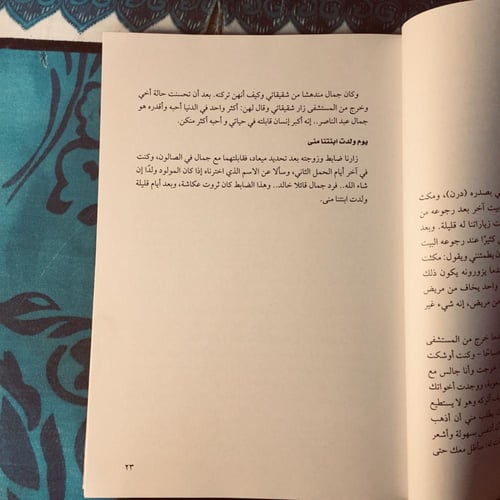 وكان جمال مندهشا من شقيقاتي وكيف أنهن تركنه. بعد أن تحسنت حالة أخي
وخرج من المستشفى زار شقيقاتي وقال لهن: أكثر واحد في الدنيا أحبه وأقدره هو
جمال عبد الناصر.. إنه أكبر إنسان قابلته في حياتي و أحبه أكثر منكن.
يوم ولدت ابنتنا منى
زارنا ضابط وزوجته بعد تحديد ميعاد، فقابلتهما مع جمال في الصالون، وكنت
في آخر أيام الحمل الثاني، وسألا عن الاسم الذي اخترناه إذا كان المولود ولدًا إن
شاء الله.. فرد جمال قائلا خالد.. وهذا الضابط كان ثروت عكاشة، وبعد أيام قليلة
ولدت ابنتنا منى.
٢٣
ي بصدره (درن)، ومكث
بيت آخر بعد رجوعه من
ت زياراتنا له قليلة. وبعد
كثيرًا عند رجوعه البيت
ن يطمئنني ويقول: مكثت
دما يزورونه يكون ذلك
واحد يخاف من مريض
من مريض، إنه شيء غير
دما خرج من المستشفى
صباحًا - وكنت أوشكت
خرجت وأنا جالس مع
ووجدت أخواتك
أتركه وهو لا يستطيع
مني أن أذهب
بسهولة وأشعر
سأظل معك حتى